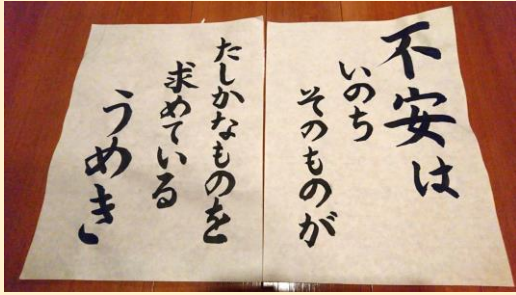 不安は
いのち
そのものが
たしかなものを
求めている
うめき